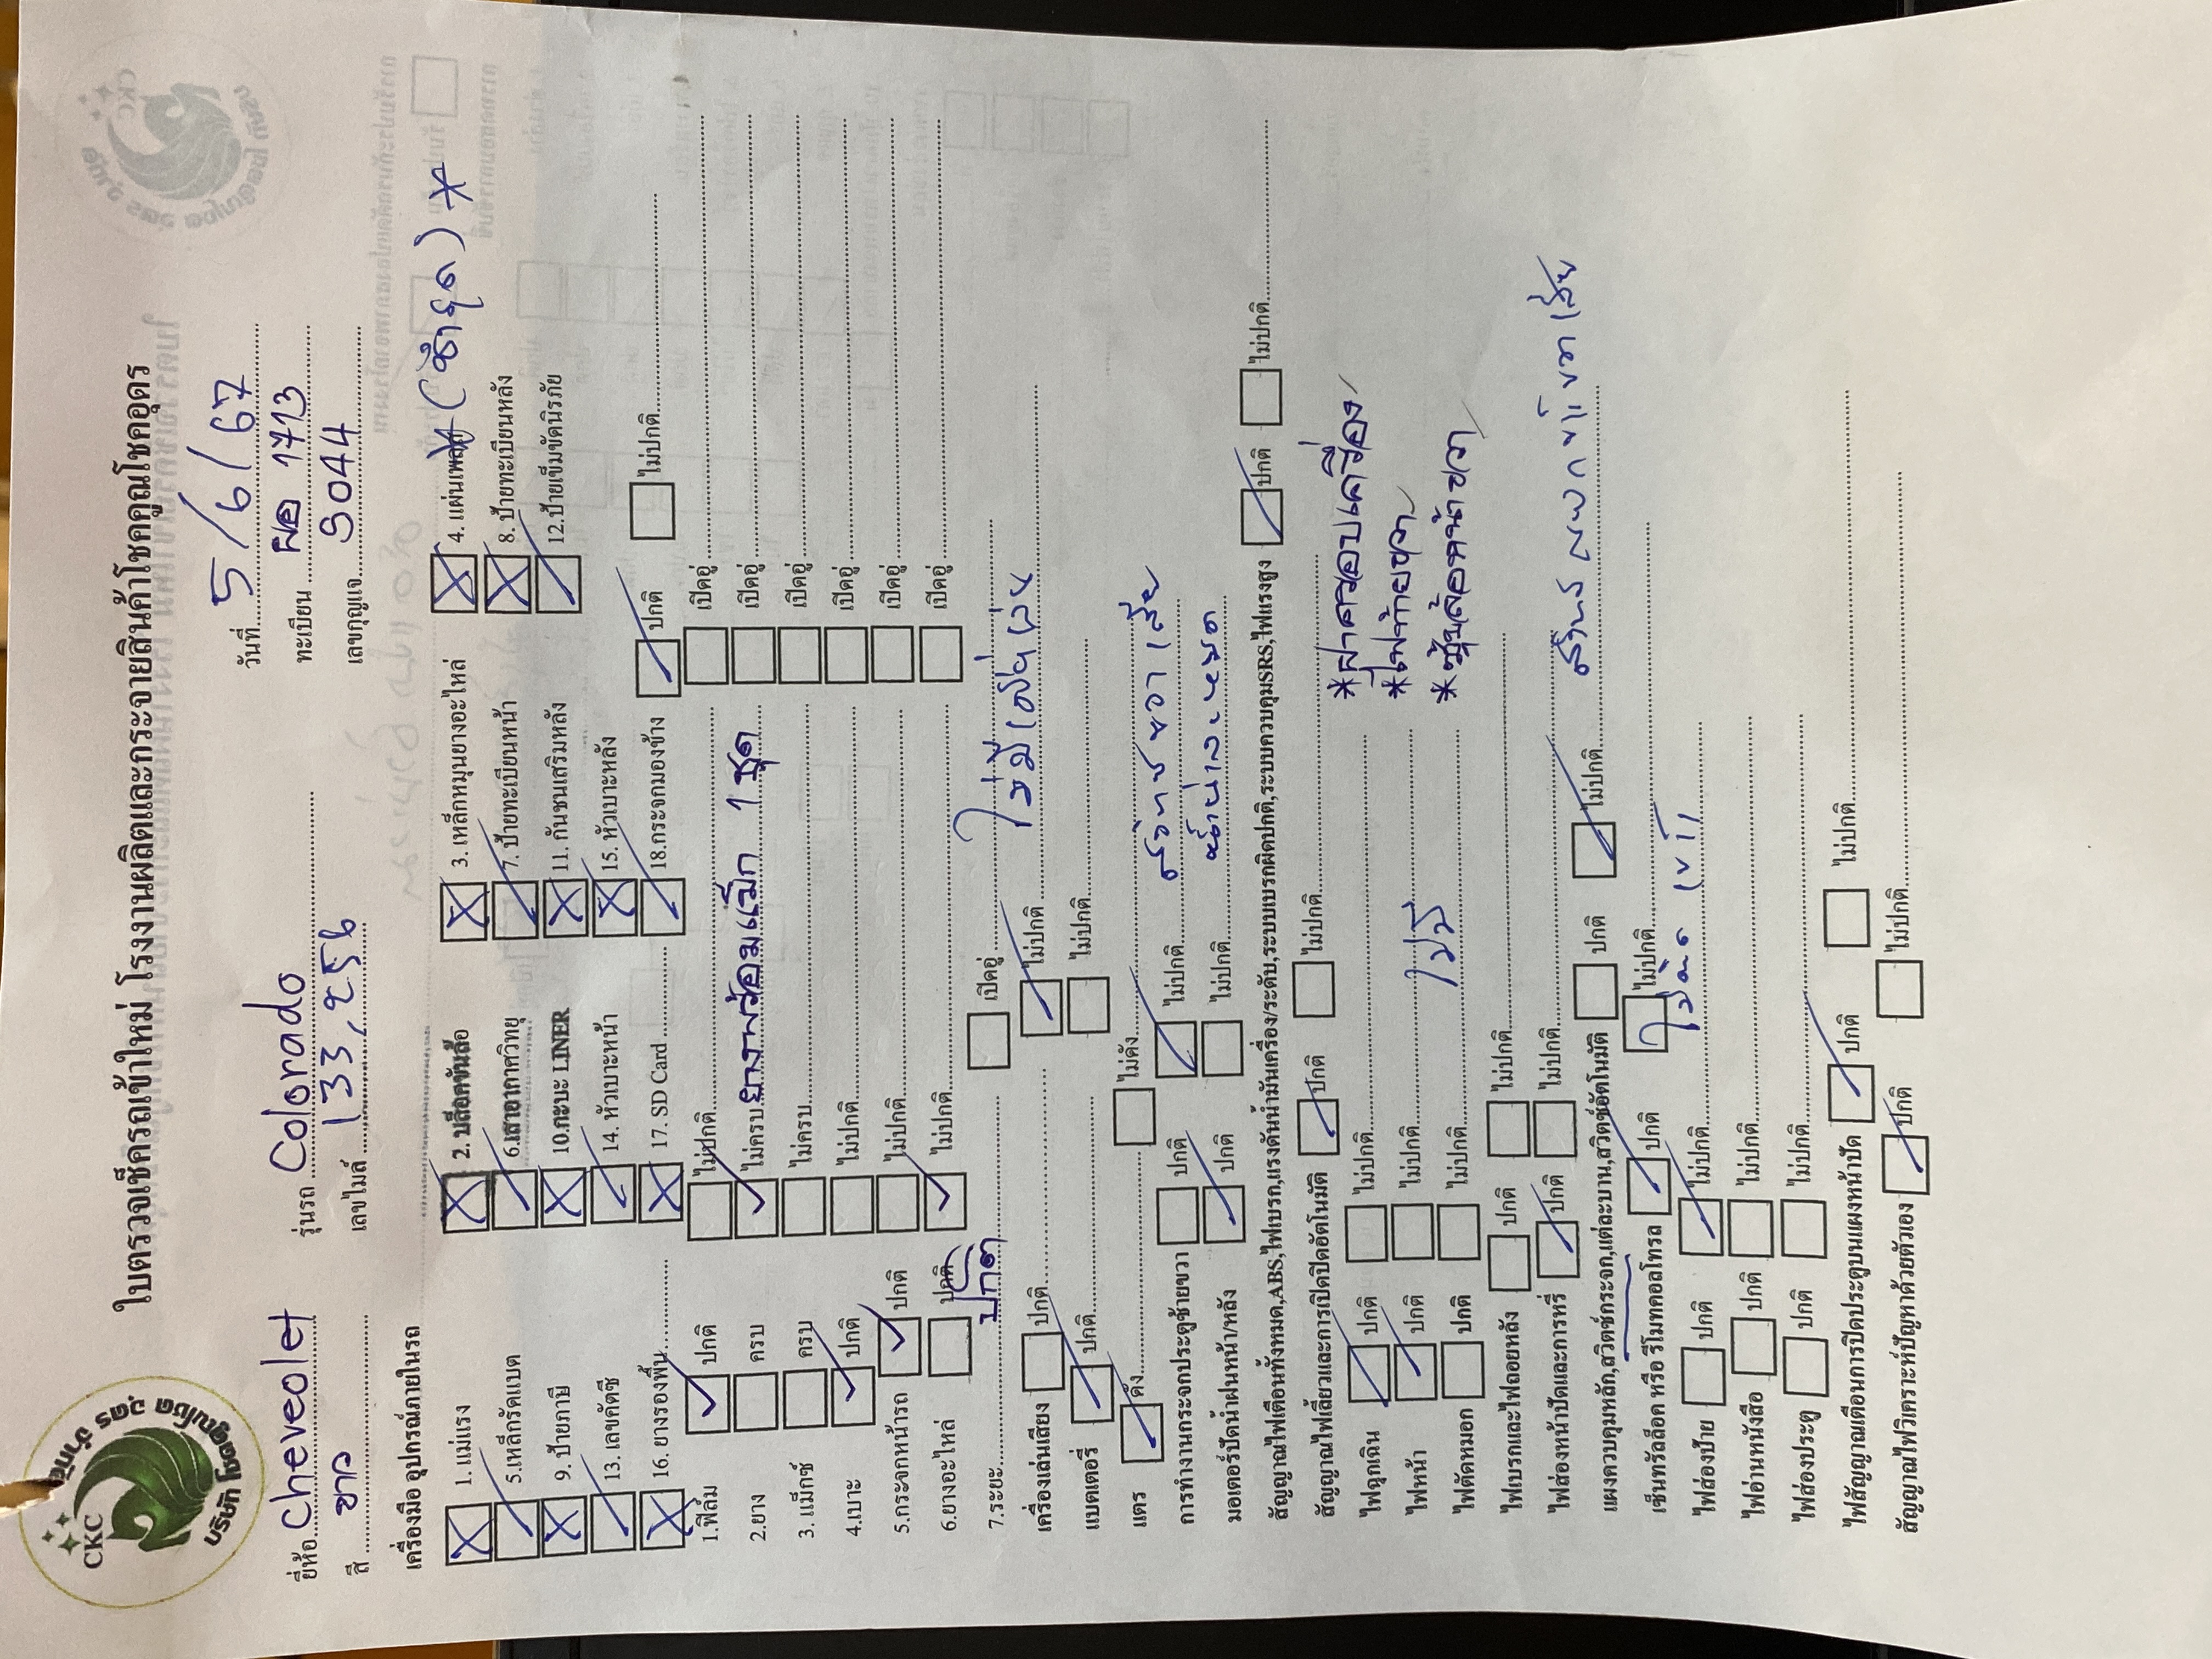 CKC
บริษัท โชคคูณโชค อุดร จำกัด
ใบตรวจเช็ครถเข้าใหม่ โรงงานผลิตและกระจายสินค้าโชคคูณโชคอุดร
วันที่ 5/6/67
ยี่ห้อ Cheveolet รุ่นรถ Colorado ทะเบียน ผอ 1713
สี ขาว เลขไมล์ 133,256 เลขกุญแจ S044
เครื่องมือ อุปกรณ์ภายในรถ
1. แม่แรง 2. บล็อกขันล้อ 3. เหล็กหมุนยางอะไหล่ 4. แผ่นเพลท (ชำรุด)
5.เหล็กรัดแบต 6.เสาอากาศวิทยุ 7. ป้ายทะเบียนหน้า 8. ป้ายทะเบียนหลัง
9. ป้ายภาษี 10.กะบะ LINER 11. กันชนเสริมหลัง 12.ป้ายเข็มขัดนิรภัย
13. เลขคัตซี 14. หัวเบาะหน้า 15. หัวเบาะหลัง
16. ยางรองพื้น 17. SD Card 18.กระจกมองข้าง ปกติ ไม่ปกติ
1.ฟิล์ม ปกติ ไม่ปกติ เปิดอู่
2.ยาง ครบ ไม่ครบ ยางพร้อมแม็ก 1 ชุด เปิดอู่
3. แม็กซ์ ครบ ไม่ครบ เปิดอู่
4.เบาะ ปกติ ไม่ปกติ เปิดอู่
5.กระจกหน้ารถ ปกติ ไม่ปกติ เปิดอู่
6.ยางอะไหล่ ปกติ ไม่ปกติ เปิดอู่
7.ระยะ ปกติ เปิดอู่
เครื่องเล่นเสียง ปกติ ไม่ปกติ ไม่มีแผ่น
แบตเตอรี่ ปกติ ไม่ปกติ
แตร ดัง ไม่ดัง
การทำงานกระจกประตูซ้ายขวา ปกติ ไม่ปกติ สวิทซ์ ขวา เสีย
มอเตอร์ปัดน้ำฝนหน้า/หลัง ปกติ ไม่ปกติ
สัญญาณไฟเตือนทั้งหมด,ABS,ไฟเบรก,แรงดันน้ำมันเครื่อง/ระดับ,ระบบเบรกผิดปกติ,ระบบควบคุมSRS,ไฟแรงสูง ปกติ ไม่ปกติ
สัญญาณไฟเลี้ยวและการเปิดปิดอัตโนมัติ ปกติ ไม่ปกติ
ไฟฉุกเฉิน ปกติ ไม่ปกติ *ฝาครอบเครื่อง
ไฟหน้า ปกติ ไม่ปกติ *ไฟท้ายขวา
ไฟตัดหมอก ปกติ ไม่ปกติ ไม่มี *ซุ้มล้อหน้าขวา
ไฟเบรกและไฟถอยหลัง ปกติ ไม่ปกติ
ไฟส่องหน้าปัดและการหรี่ ปกติ ไม่ปกติ
แผงควบคุมหลัก,สวิตซ์กระจก,แต่ละบาน,สวิตซ์อัตโนมัติ ปกติ ไม่ปกติ
เซ็นทรัลล็อค หรือ รีโมทคอลโทรล ปกติ ไม่ปกติ
ไฟส่องป้าย ปกติ ไม่ปกติ
ไฟอ่านหนังสือ ปกติ ไม่ปกติ
ไฟส่องประตู ปกติ ไม่ปกติ
ไฟสัญญาณเตือนการปิดประตูบนแผงหน้าปัด ปกติ ไม่ปกติ
สัญญาณไฟวิเคราะห์ปัญหาด้วยตัวเอง ปกติ ไม่ปกติ